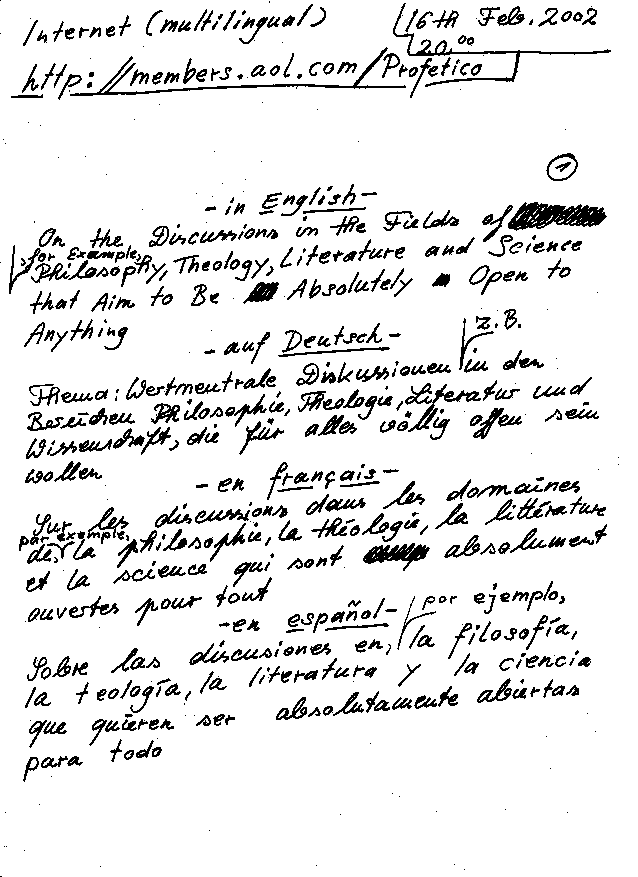 Internet (multilingual)
16th Feb. 2002
20.00
http://members.aol.com/Profetico
1
- in English -
On the Discussions in the Fields of
for Example,
Philosophy, Theology, Literature and Science
that Aim to Be Absolutely Open to
Anything
- auf Deutsch -
z.B.
Thema: Wertneutrale Diskussionen in den
Bereichen Philosophie, Theologie, Literatur und
Wissenschaft, die für alles völlig offen sein
wollen
- en français -
Sur les discussions dans les domaines
par exemple,
de, la philosophie, la théologie, la littérature
et la science qui sont absolument
ouvertes pour tout
- en español -
por ejemplo,
Sobre las discusiones en, la filosofía,
la teología, la literatura y la ciencia
que quieren ser absolutamente abiertas
para todo